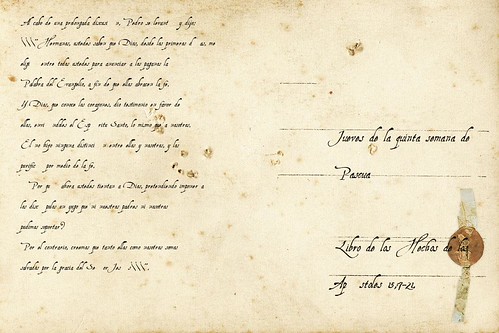 Al cabo de una prolongada discusi n, Pedro se levant y dijo:
"Hermanos, ustedes saben que Dios, desde los primeros d as, me
eligi entre todos ustedes para anunciar a los paganos la
Palabra del Evangelio, a fin de que ellos abracen la fe.
Y Dios, que conoce los corazones, dio testimonio en favor de
ellos, envi ndoles el Esp ritu Santo, lo mismo que a nosotros.
El no hizo ninguna distinci n entre ellos y nosotros, y los
purific por medio de la fe.
Por qu ahora ustedes tientan a Dios, pretendiendo imponer a
los disc pulos un yugo que ni nuestros padres ni nosotros
pudimos soportar?
Por el contrario, creemos que tanto ellos como nosotros somos
salvados por la gracia del Se or Jes
Jueves de la quinta semana de
Pascua
Libro de los Hechos de los
Ap stoles 15,7-21.